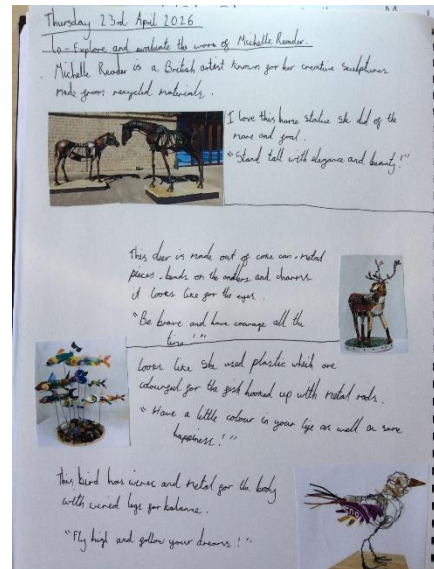 Thursday 23rd April 2026
Lo - Explore and evaluate the work of Michelle Reader.
Michelle Reader is a British artist known for her creative sculptures
made from recycled materials.
I love this horse statue she did of the
mare and foal.
"Stand tall with elegance and beauty!"
This deer is made out of coke can, metal
pieces, beads on the antlers and charms
it looks like for the eyes.
"Be brave and have courage all the
time!"
Looks like she used plastic which are
coloured for the fish hooked up with metal rods.
"Have a little colour in your life as well as some
happiness!"
This bird has wires and metal for the body
with wired legs for balance.
"Fly high and follow your dreams!"